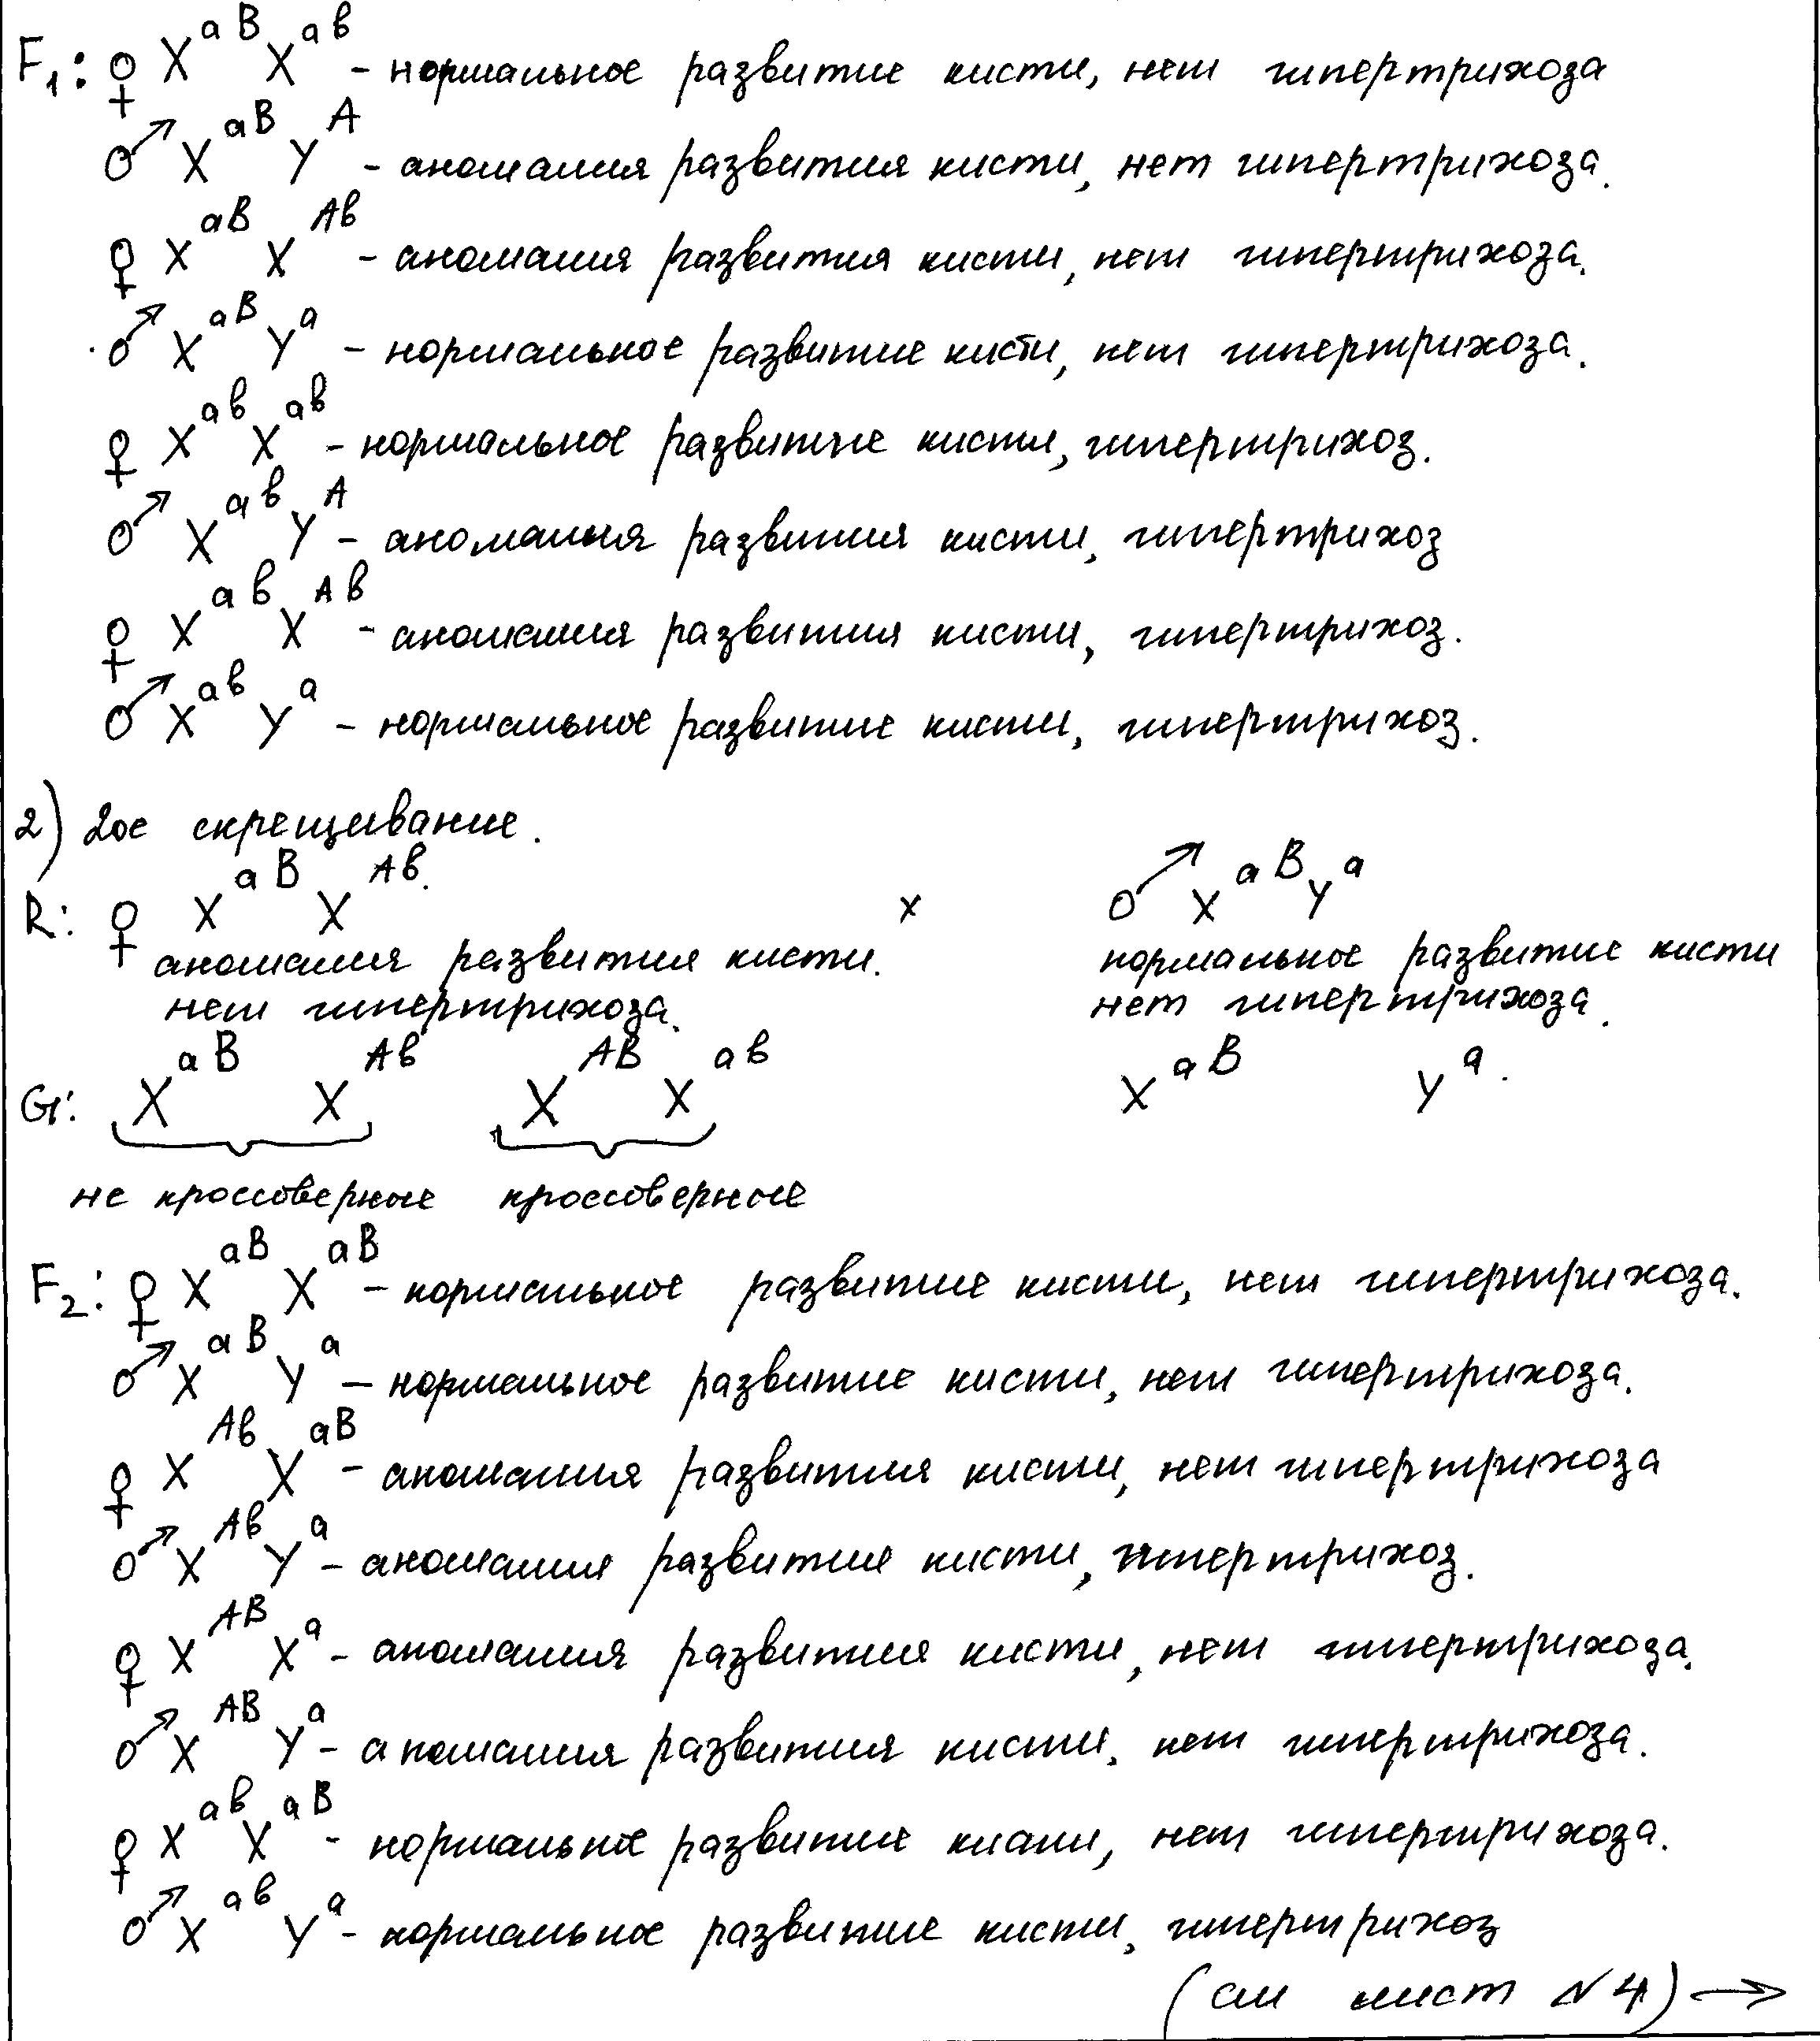 F₁: ♀ X^aB X^ab - нормальное развитие кисти, нет гипертрихоза
♂ X^aB Y^A - аномалия развития кисти, нет гипертрихоза.
♀ X^aB X^Ab - аномалия развития кисти, нет гипертрихоза.
♂ X^aB Y^a - нормальное развитие кисти, нет гипертрихоза.
♀ X^ab X^ab - нормальное развитие кисти, гипертрихоз.
♂ X^ab Y^A - аномалия развития кисти, гипертрихоз
♀ X^ab X^Ab - аномалия развития кисти, гипертрихоз.
♂ X^ab Y^a - нормальное развитие кисти, гипертрихоз.
2) 2ое скрещивание.
R: ♀ X^aB X^Ab. x ♂ X^aB Y^a
аномалия развития кисти. нормальное развитие кисти
нет гипертрихоза. нет гипертрихоза.
G: X^aB X^Ab X^AB X^ab X^aB Y^a.
не кроссоверные кроссоверные
F₂: ♀ X^aB X^aB - нормальное развитие кисти, нет гипертрихоза.
♂ X^aB Y^a - нормальное развитие кисти, нет гипертрихоза.
♀ X^Ab X^aB - аномалия развития кисти, нет гипертрихоза
♂ X^Ab Y^a - аномалия развитие кисти, гипертрихоз.
♀ X^AB X^a - аномалия развития кисти, нет гипертрихоза.
♂ X^AB Y^a - аномалия развития кисти, нет гипертрихоза.
♀ X^ab X^aB - нормальное развитие кисти, нет гипертрихоза.
♂ X^ab Y^a - нормальное развитие кисти, гипертрихоз
(см лист N4) →